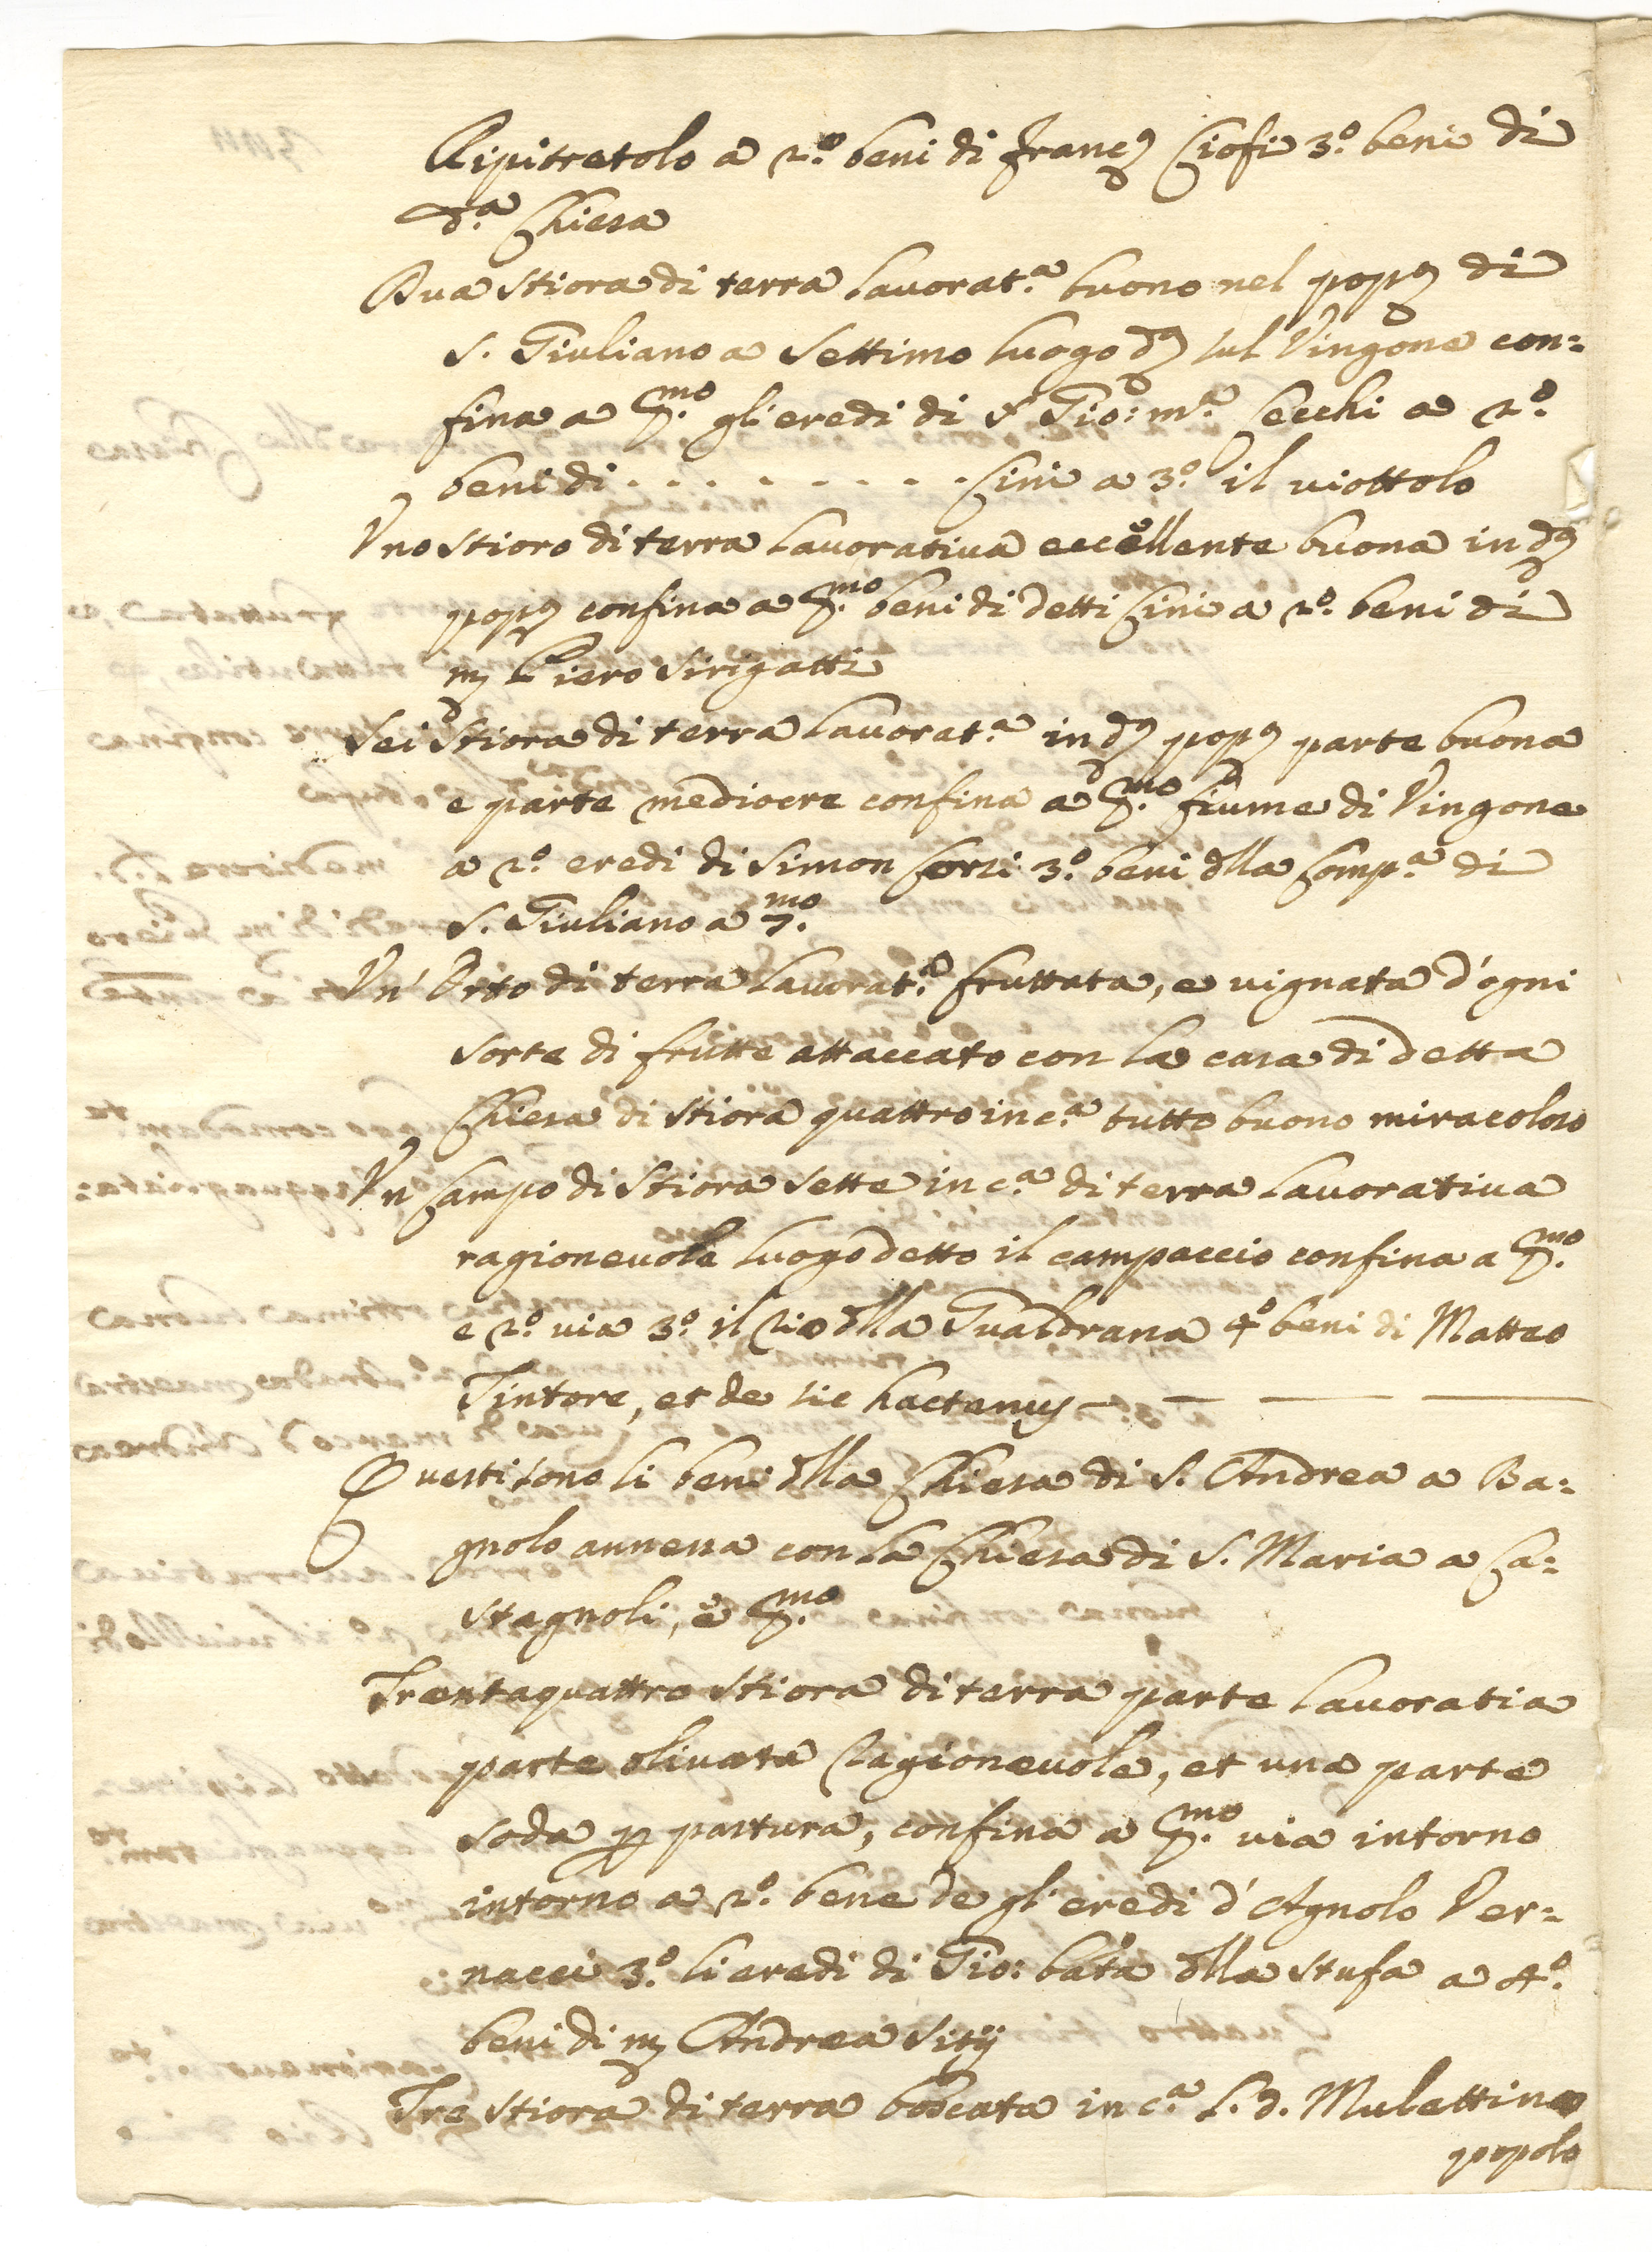 Ripitretolo a 2.º beni di Franc.º Ciofi 3.º beni di
d.ª Chiesa
Dua stiora di terra lauorat.ª buono nel pop.º di
S. Giuliano a Settimo luogo d.º sul Vingone con=
fina a p.mo gli eredi di S.r Gio: m.ª Cecchi a 2.º
beni di . . . . . . . . . Cini a 3.º il uiottolo
Vno stioro di terra lauoratiua eccellente buona in d.º
pop.º confina a p.mo beni di detti Cini a 2.º beni di
m. Piero Sirigatti
Sei stiora di terra lauorat.ª in d.º pop.º parte buona
e parte mediocre confina a p.mo fiume di Vingone
a 2.º eredi di Simon Corsi 3.º beni dlla Comp.ª di
S. Giuliano a 7.mo
Vn' Orto di terra lauorat.ª fruttata, e uignata d'ogni
sorte di frutte attaccato con la casa di detta
Chiesa di stiora quattro in c.ª tutto buono miracoloso
Vn Campo di stiora sette in c.ª di terra lauoratiua
ragioneuole luogo detto il campaccio confina a p.mo
e 2.º uia 3.º il rio dlla Gualdrana 4º beni di Matteo
Tintore, et de sic hactenus — — — —
Questi sono li beni dlla Chiesa di S. Andrea a Ba=
gnolo annessa con la Chiesa di S. Maria a Ca=
stagnoli, e p.mo
Trentaquattro stiora di terra parte lauoratia
parte oliuata ragioneuole, et una parte
soda p pastura, confina a p.mo uia intorno
intorno a 2.º bene de gl' eredi d' Agnolo Ver=
nacci 3.º li eredi di Gio: bat'a dlla Stufa a 4.º
beni di m. Andrea
Tre stiora di terra boscata in c.ª l. d. Mulettina
popolo